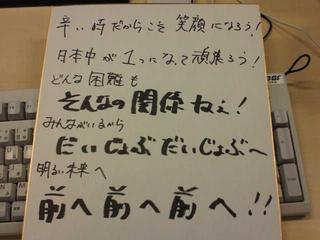 辛い時だからこそ笑顔になろう!
日本中が1つになって頑張ろう!
どんな困難も
そんなの関係ねぇ!
みんながいるから
だいじょぶだいじょぶ〜
明るい未来へ
前へ前へ前へ!!